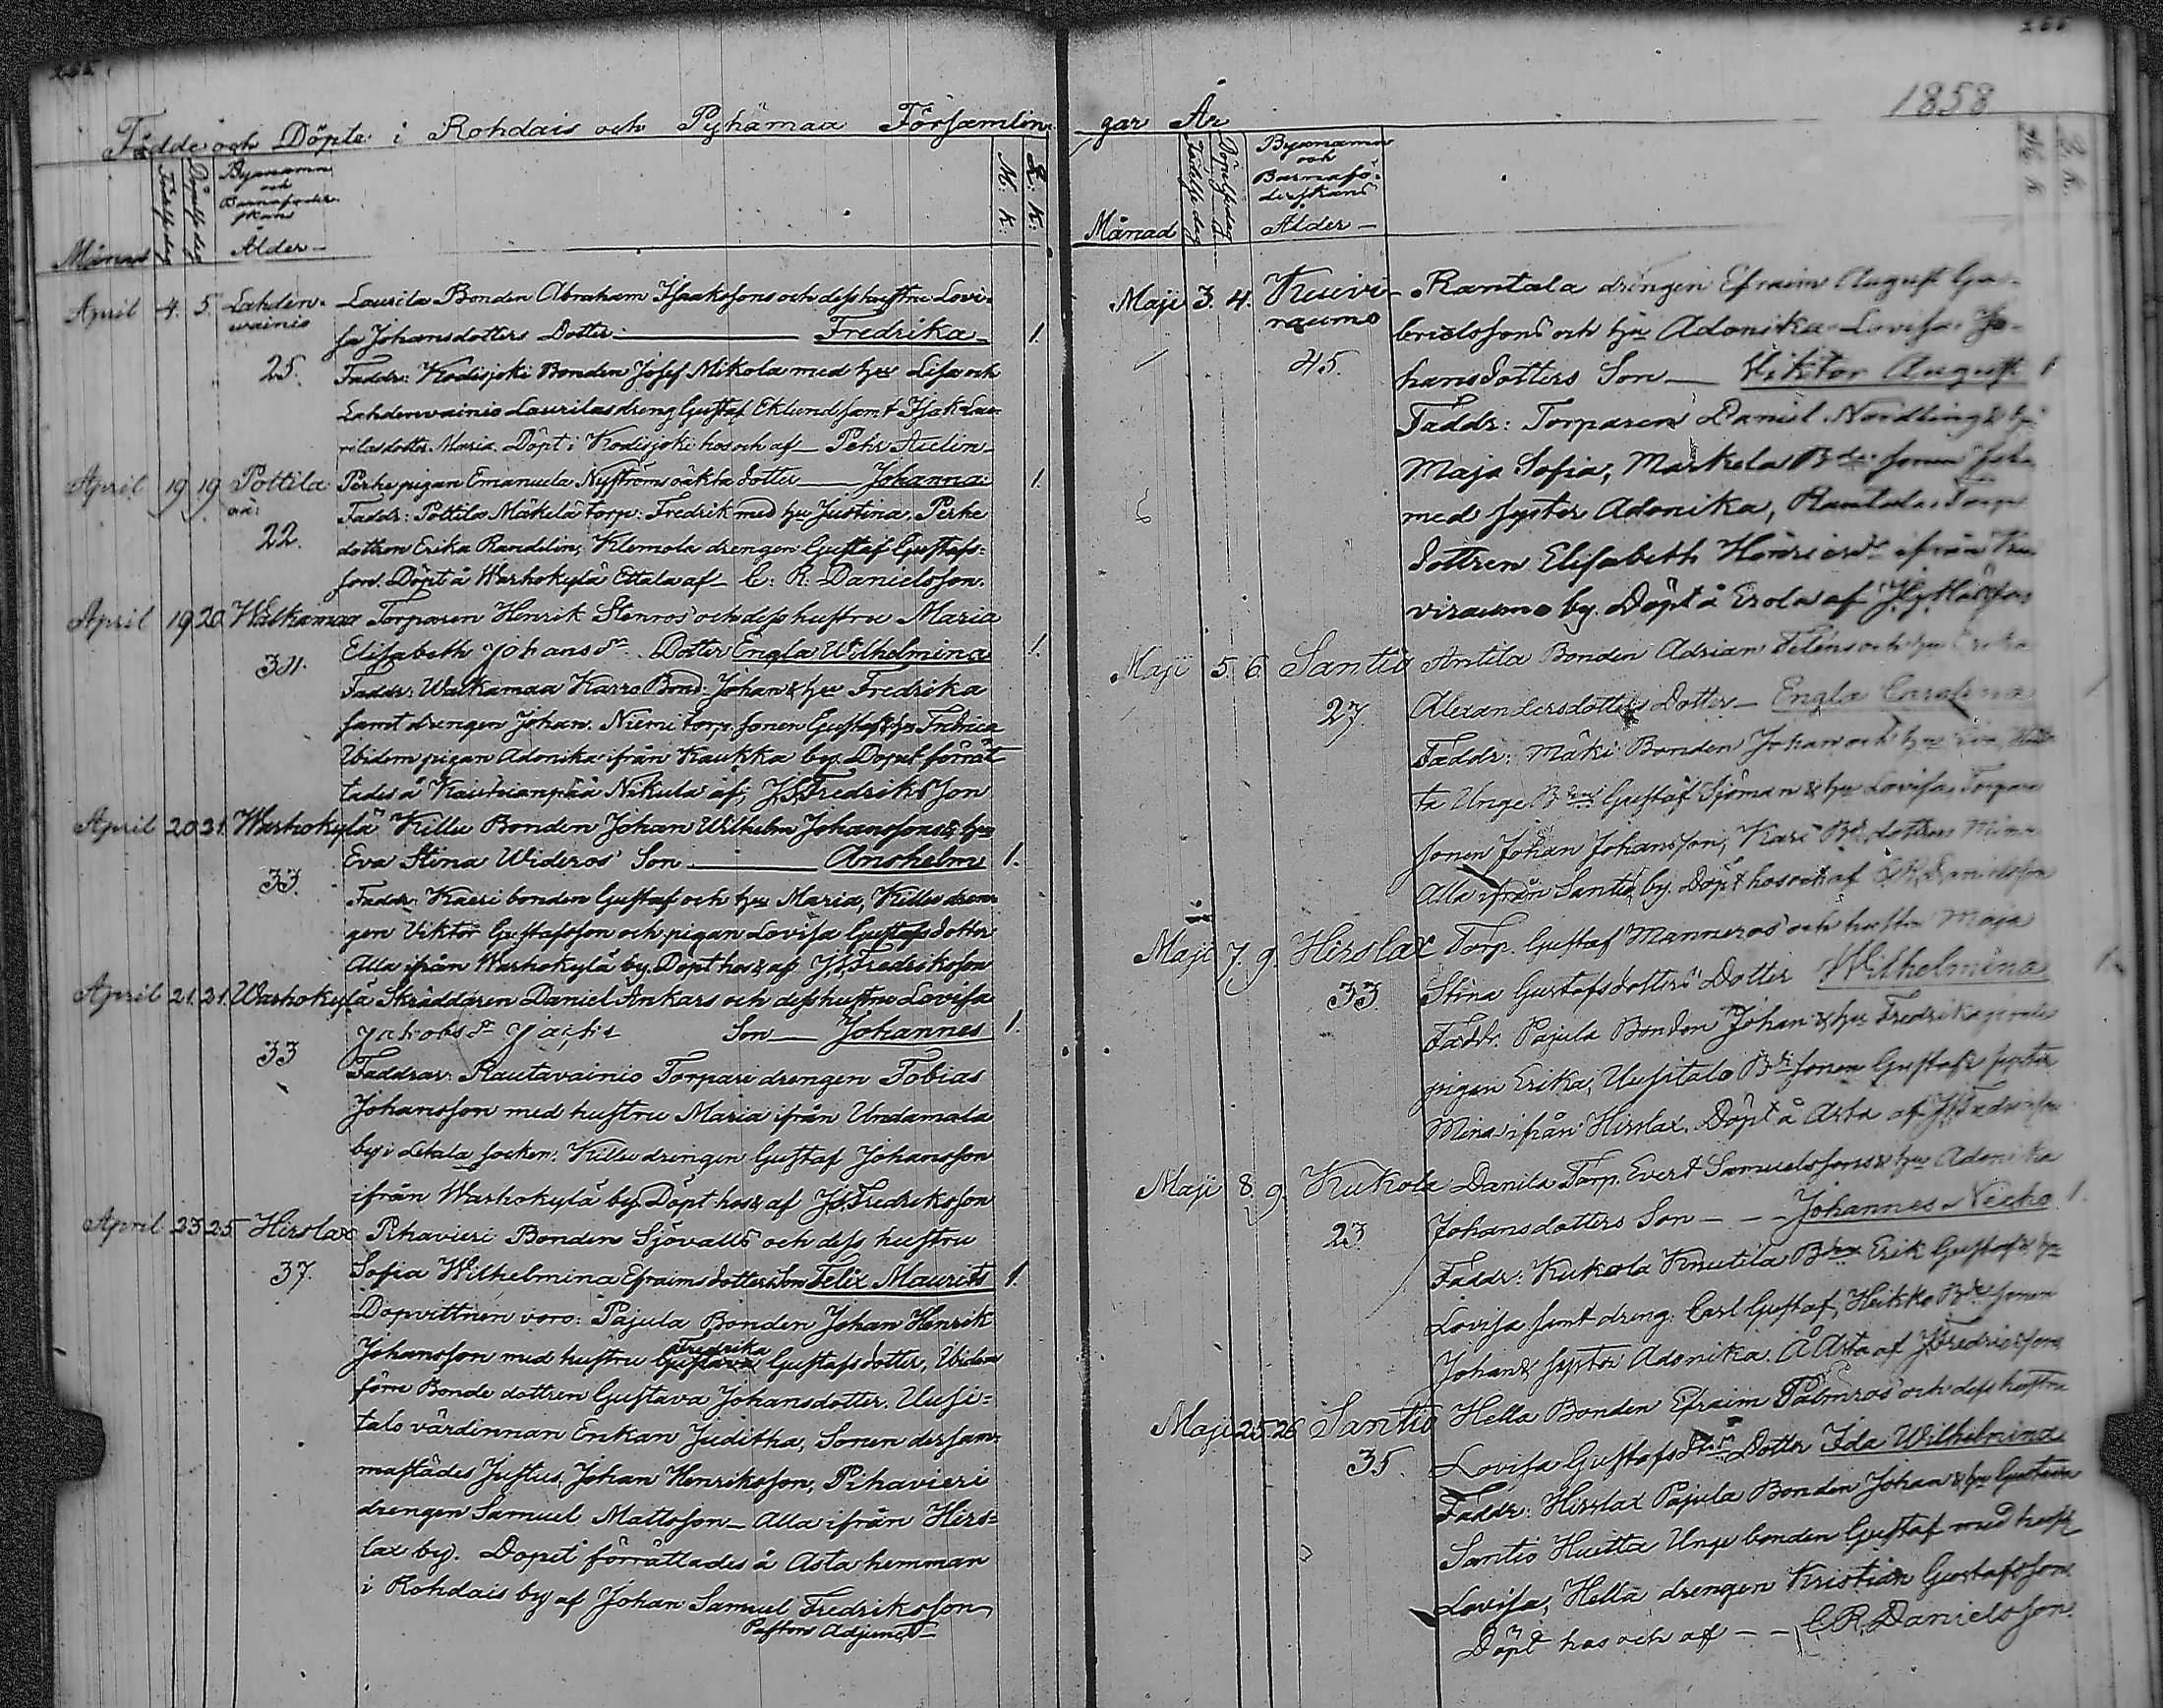 Födde och Döpte i Rohdais och Pyhämaa Församlin-
Månad Födelsedag Döpelsedag Byanamn och Barnaföderskans Ålder M. K. Q. K.
April 4. 5. Lahdenwainio Laurila Bonden Abraham Isaakssons och dess hustru Lovi-
sa Johansdotters Dotter Fredrika 1.
25. Faddr: Kodisjoki Bonden Josef Mikola med hu Lisa och
Lahdenwainio Laurilas dreng Gustaf Eklund samt Isak Lau-
rilas dotter Maria. Döpt i Kodisjoki hos och af Pehr Aulin
April 19 19 Pottila Perhe pigan Emanuela Nyströms oäkta dotter Johanna 1.
oä:
22. Faddr: Pottila Mäkelä torp: Fredrik med hu Justina. Perhe
dottren Erika Randelin, Klemola drengen Gustaf Gustafs-
son. Döpt å Warhokylä Ettala af C. R. Danielsson.
April 19 20 Walkamaa Torparen Henrik Stenros och dess hustru Maria
Elisabeth Johansdr Dotter Engla Wilhelmina 1.
31. Faddr: Walkamaa Karro Bond: Johan & hu Fredrika
samt drengen Johan. Niemi torp. sonen Gustaf & hu Fredrica
Ibidem pigan Adonika ifrån Kaukka by. Dopet förrät-
tades å Nikula af J. S. Fredriksson
April 20 21. Warhokylä Killu Bonden Johan Wilhelm Johanssons & hu
Eva Stina Wideros Son Anshelm 1.
33. Faddr: Kaeri bonden Gustaf och hu Maria, Killus dren-
gen Viktor Gustafsson och pigan Lovisa Gustafsdotter
Alla ifrån Warhokylä by. Döpt hos & af J. S. Fredriksson
April 21. 21. Warhokylä Skräddaren Daniel Ankars och dess hustru Lovisa
Jakobsdr Son Johannes 1.
33 Faddrar: Rautavainio Torpare drengen Tobias
Johansson med hustru Maria ifrån Undamala
by i Letala socken. Killu drengen Gustaf Johansson
ifrån Warhokylä by. Döpt hos & af J. S. Fredriksson
April 23 25. Hirslax Pihavieri Bonden Sjövalls och dess hustru
37. Sofia Wilhelmina Efraimsdotters Son Felix Maurits 1.
Dopvittnen voro: Pajula Bonden Johan Henrik
Fredrika
Johansson med hustru Gustava Gustafsdotter, Ibidem
förre Bonde dottren Gustava Johansdotter. Uusi-
talo värdinnan Enkan Juditha, Sonen dersam-
mastädes Justus, Johan Henriksson, Pihavieri
drengen Samuel Mattsson – Alla ifrån Hirs-
lax by. Dopet förrättades å Asta hemman
i Rohdais by af Johan Samuel Fredriksson
Pastors Adjunct
1858
gar År
Månad Födelsedag Döpelsedag Byanamn och Barnaföderskans Ålder M. K. Q. K.
Maji 3. 4. Kuivi- Rantala drengen Efraim August Ga-
raumo brielssons och hu Adonika Lovisa Jo-
45. hansdotters Son – Viktor August 1
Faddr: Torparen Daniel Nordling & hu
Maja Sofia, Markela Bde sonen
med syster Adonika, Rantala Torp
dottren Elisabeth ifrån Kui-
viraumo by. Döpt å Erola af
Maji 5. 6. Santio Antila Bonden Adrian och hu Erika
27. Alexandersdotters Dotter – Engla Carolina
Faddr: Mäki Bonden Johan och hu Eva, Huit-
ta Unge Gustaf Sjöman & hu Lovisa, Torpare
sonen Johan Johansson, Kari Bde dottren Mina
Alla ifrån Santio by. Döpt hos och af C. R. Danielsson
Maji 7. 9. Hirslax Torp. Gustaf Manneros och hustru Maja
33. Stina Gustafsdotters Dotter Wilhelmina 1.
Faddr: Pajula Bonden Johan & hu Fredrika
pigan Erika, Uusitalo Bde sonen Gustaf & syster
Mina ifrån Hirslax. Döpt å Asta af J. S. Fredriksson
Maji 8. 9. Kukola Danila Torp. Evert Samuelssons & hu Adonika
23. Johansdotters Son – – Johannes Nicko 1.
Faddr: Kukola Knutila Erik Gustaf & hu
Lovisa samt dreng: Carl Gustaf, Heikko Bde sonen
Johan & syster Adonika. Å Asta af J. S. Fredriksson
Maji 25. 26 Santio Hella Bonden Efraim Palmros och dess hustru
35. Lovisa Gustafsdtrs Dotter Ida Wilhelmina
Faddr: Hirslax Pajula Bonden Johan & hu Gustava
Santio Huitta Unge bonden Gustaf med hust
Lovisa, Hella drengen Kristian Gustafsson.
Döpt hos och af – – C. R. Danielsson.